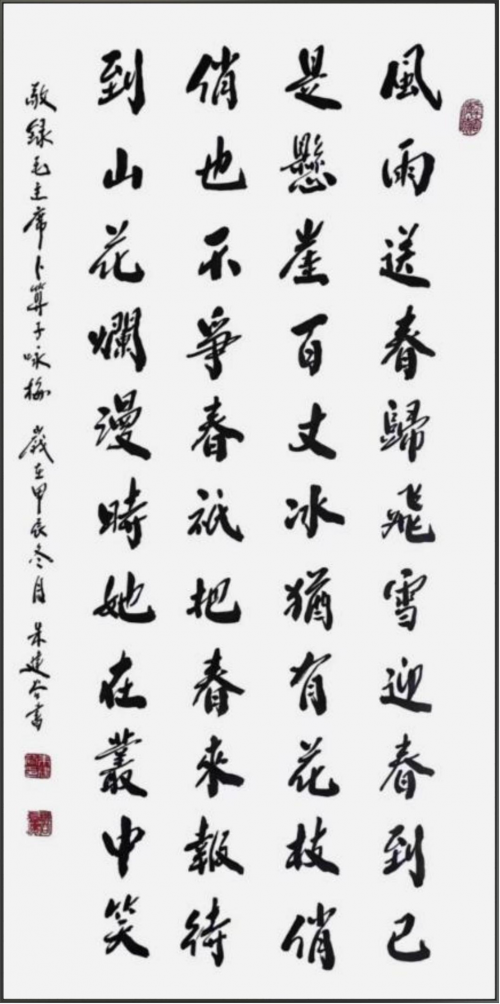 風雨送春歸飛雪迎春到已
是懸崖百丈冰猶有花枝俏
俏也不爭春祇把春來報待
到山花爛漫時她在叢中笑
敬録毛主席卜算子咏梅 歲在甲辰冬月 朱建書